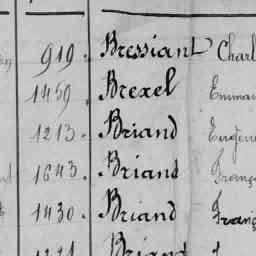 919. Bressiant Charl
1459. Brexel Emman
1213. Briand Eugène
1643. Briand Franç
1430. Briand Franç
Briand